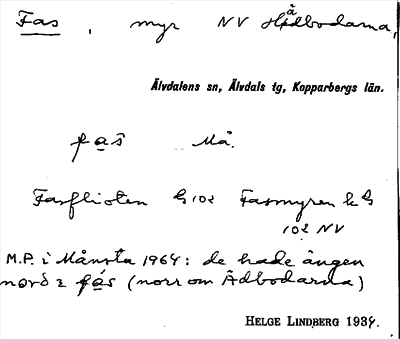 Fas, myr NV Hådbodarna,
Älvdalens sn, Älvdals tg, Kopparbergs län.
fas̑ Må.
Fasflioten G 102 Fasmyren k G
102 NV
M.P. i Månsta 1964: de hade ängen
norð 2 fás (norr om Ädbodarna)
HELGE LINDBERG 1934.